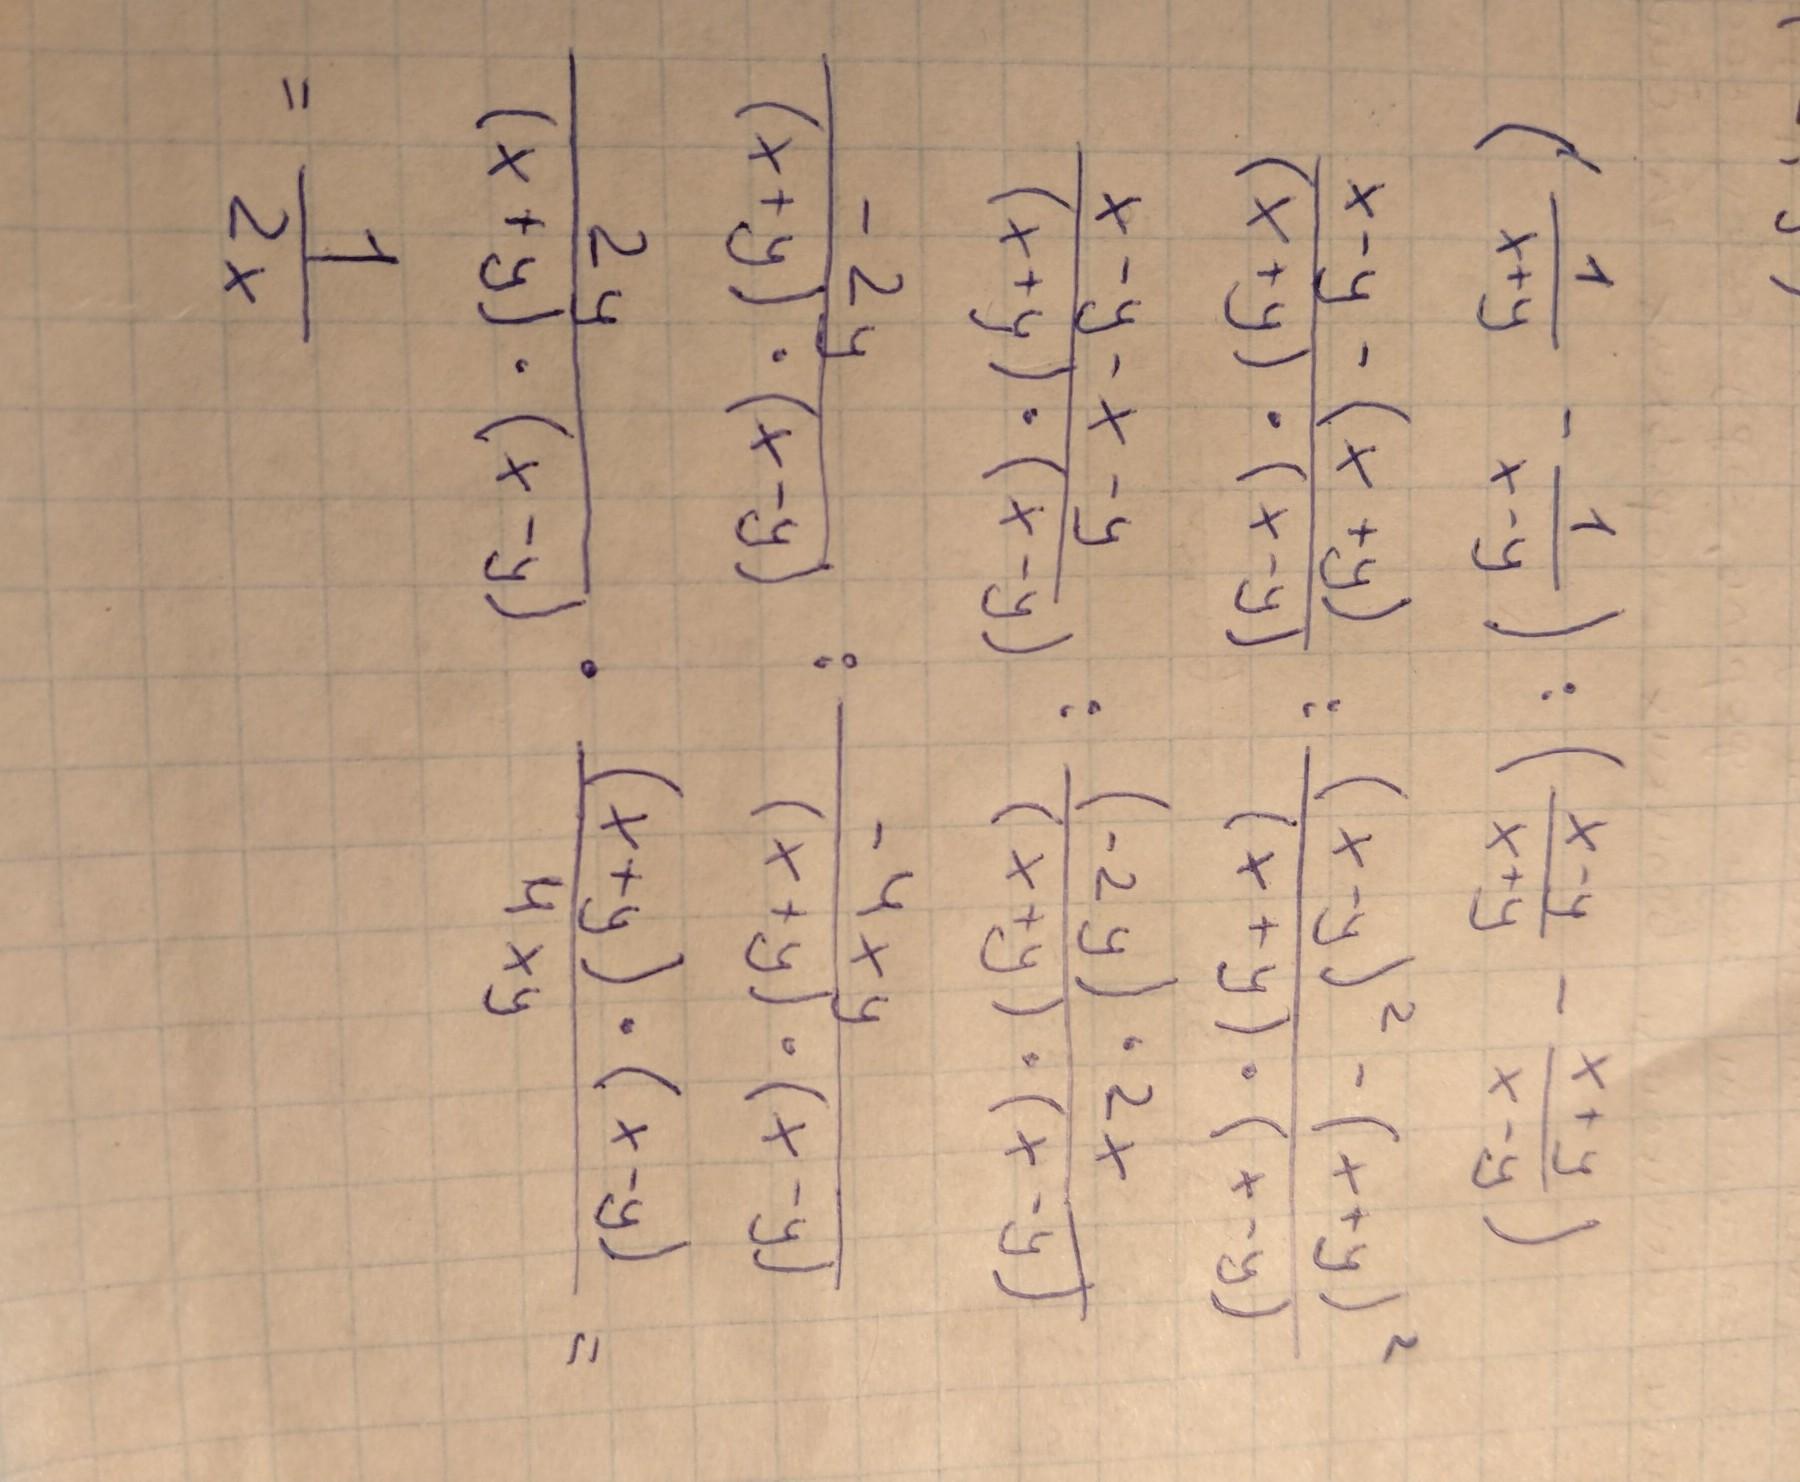 (1/(x+y) - 1/(x-y)) : ((x-y)/(x+y) - (x+y)/(x-y))
(x-y-(x+y))/((x+y)·(x-y)) : ((x-y)²-(x+y)²)/((x+y)·(x-y))
(x-y-x-y)/((x+y)·(x-y)) : ((-2y)·2x)/((x+y)·(x-y))
(-2y)/((x+y)·(x-y)) : (-4xy)/((x+y)·(x-y))
(2y)/((x+y)·(x-y)) · ((x+y)·(x-y))/(4xy) =
= 1/(2x)